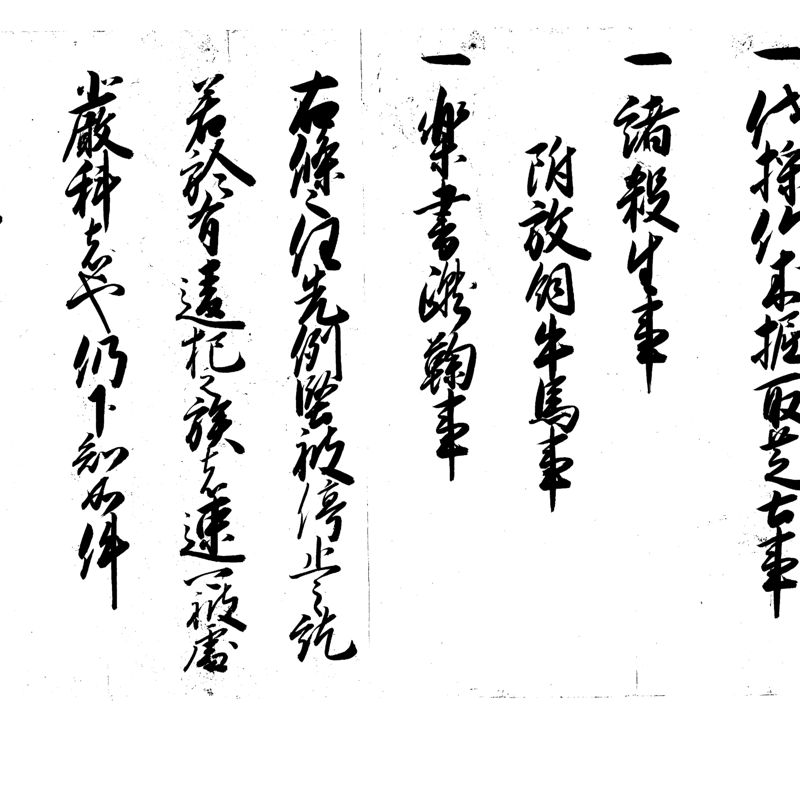 一伐採竹木掘取芝古事
一諸殺生事
附放飼牛馬事
一楽書蹴鞠事
右條々任先例堅被停止之訖
若於有違犯之族者速可被處
出嚴科者也仍下知如件